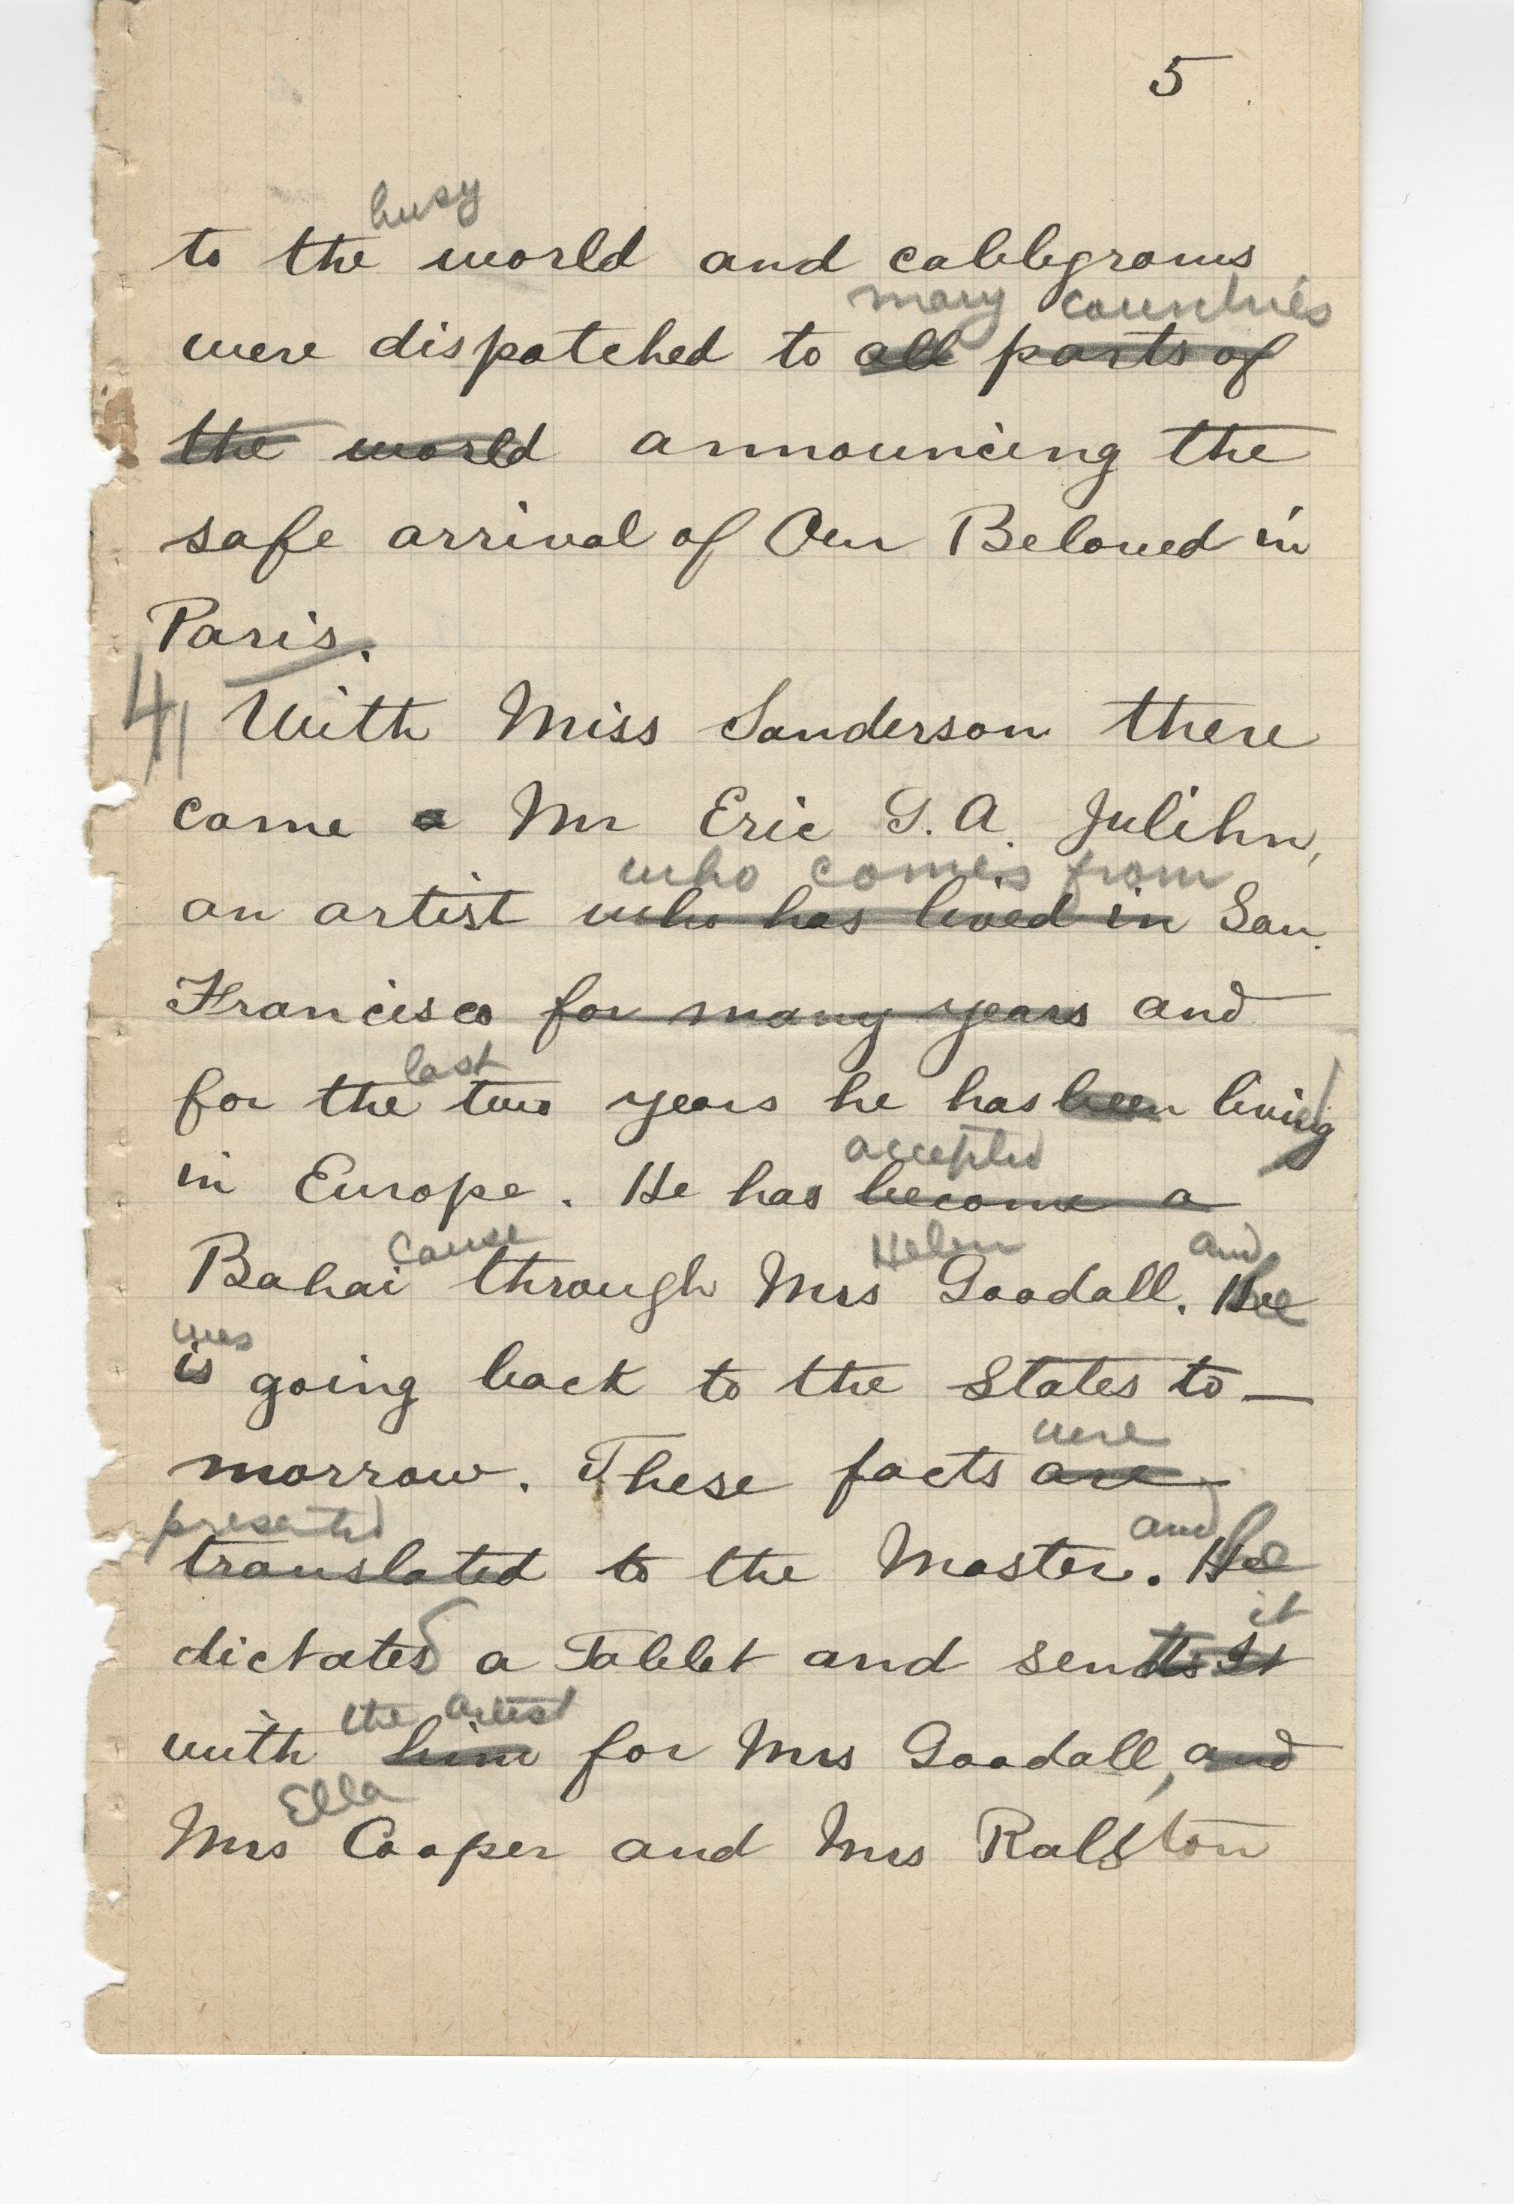 5
busy
to the world and cablegrams
many countries
were dispatched to all parts of
the world announcing the
safe arrival of Our Beloved in
Paris.
4 With Miss Sanderson there
came a Mr Eric G. A. Julihn,
who comes from
an artist who has lived in San
Francisco for many years and
last
for the two years he has been living
accepted
in Europe. He has become a
cause Helen and
Bahai through Mrs Goodall. He
was
is going back to the States to-
were
morrow. These facts are
presented and
translated to the Master. He
it
dictates a Tablet and sends It
the artist
with him for Mrs Goodall, and
Ella
Mrs Cooper and Mrs Ralston